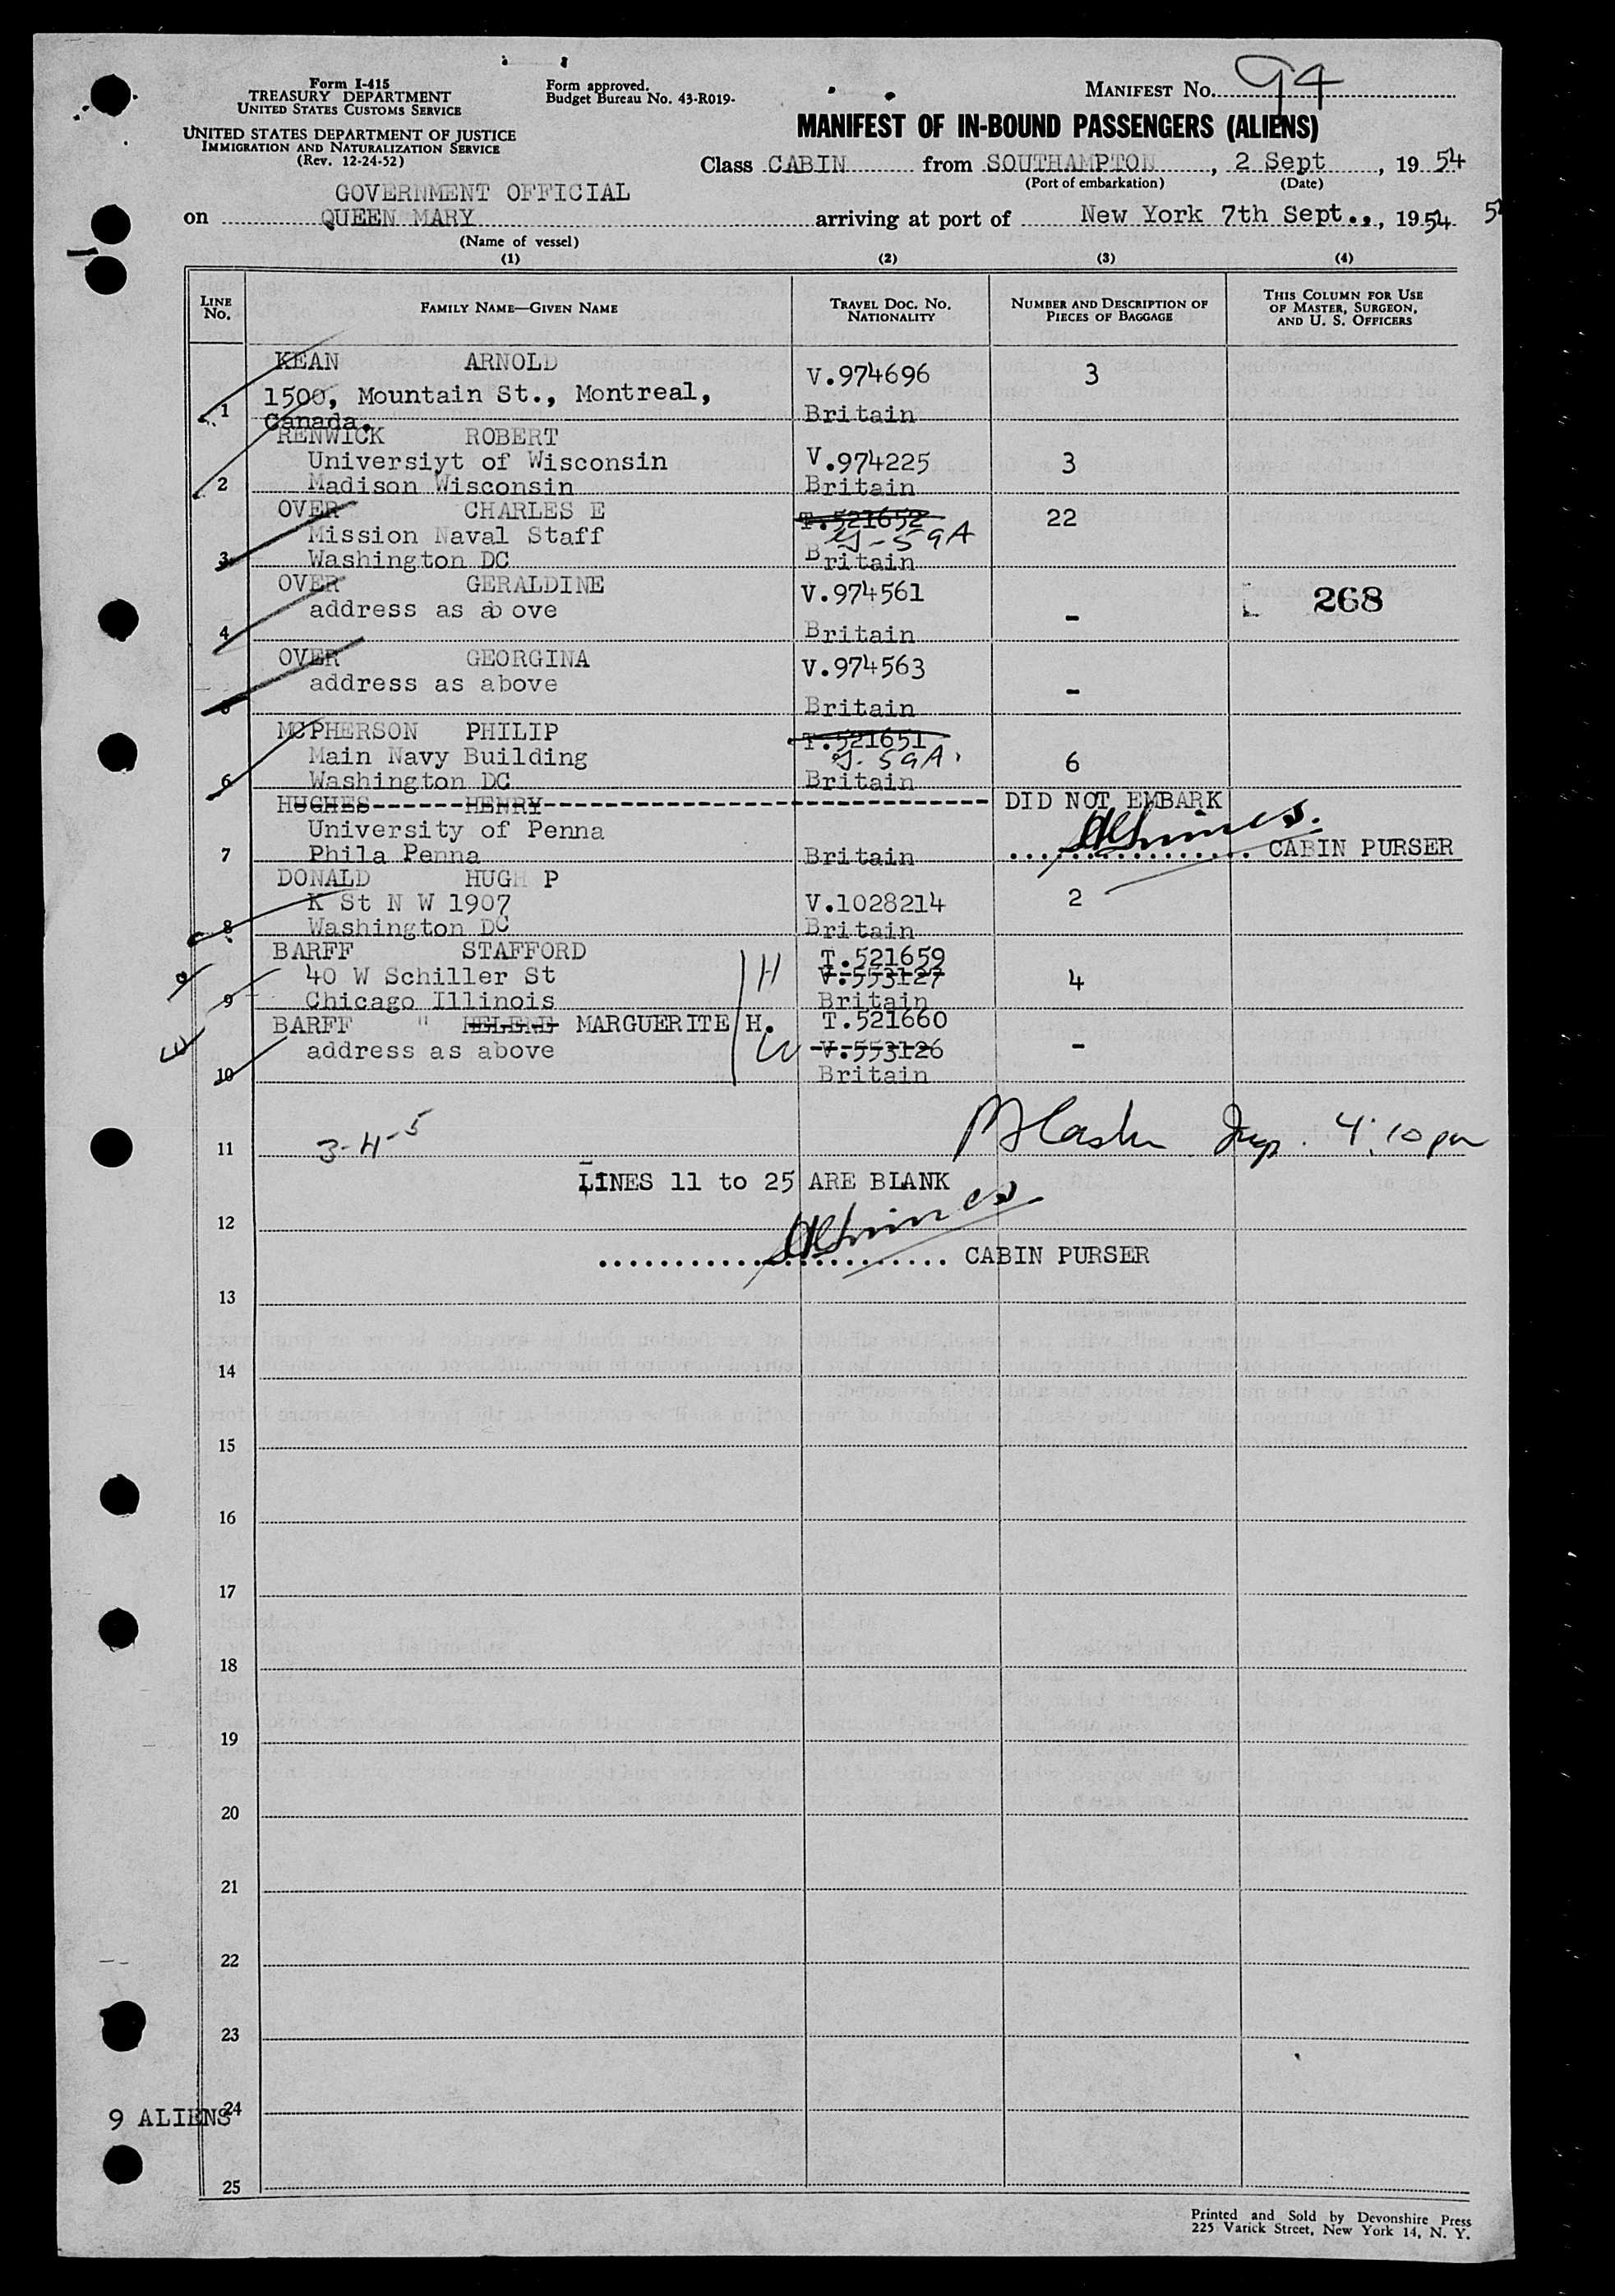 Form I-415
TREASURY DEPARTMENT
UNITED STATES CUSTOMS SERVICE
UNITED STATES DEPARTMENT OF JUSTICE
IMMIGRATION AND NATURALIZATION SERVICE
(Rev. 12-24-52)
Form approved.
Budget Bureau No. 43-R019-
MANIFEST No. 94
MANIFEST OF IN-BOUND PASSENGERS (ALIENS)
Class CABIN from SOUTHAMPTON, 2 Sept, 1954
(Port of embarkation) (Date)
GOVERNMENT OFFICIAL
on QUEEN MARY arriving at port of New York 7th Sept., 1954
(Name of vessel)
(1) (2) (3) (4)
LINE No. FAMILY NAME—GIVEN NAME TRAVEL DOC. No. NATIONALITY NUMBER AND DESCRIPTION OF PIECES OF BAGGAGE THIS COLUMN FOR USE OF MASTER, SURGEON, AND U. S. OFFICERS
KEAN ARNOLD V.974696 3
1500, Mountain St., Montreal,
1 Canada. Britain
RENWICK ROBERT
Universiyt of Wisconsin V.974225 3
2 Madison Wisconsin Britain
OVER CHARLES E T.521652 22
Mission Naval Staff
3 Washington DC Britain
OVER GERALDINE V.974561
address as above - 268
4 Britain
OVER GEORGINA V.974563
address as above -
5 Britain
MCPHERSON PHILIP T.521651
Main Navy Building 6
6 Washington DC Britain
HUGHES HENRY DID NOT EMBARK
University of Penna
7 Phila Penna Britain CABIN PURSER
DONALD HUGH P
K St N W 1907 V.1028214 2
8 Washington DC Britain
BARFF STAFFORD T.521659
40 W Schiller St H V.553127 4
9 Chicago Illinois Britain
BARFF " HELENE MARGUERITE H. T.521660
address as above W V.553126 -
10 Britain
11 3-4-5 4:10 pm
LINES 11 to 25 ARE BLANK
12
CABIN PURSER
13
14
15
16
17
18
19
20
21
22
23
24
9 ALIENS
25
Printed and Sold by Devonshire Press
225 Varick Street, New York 14, N. Y.